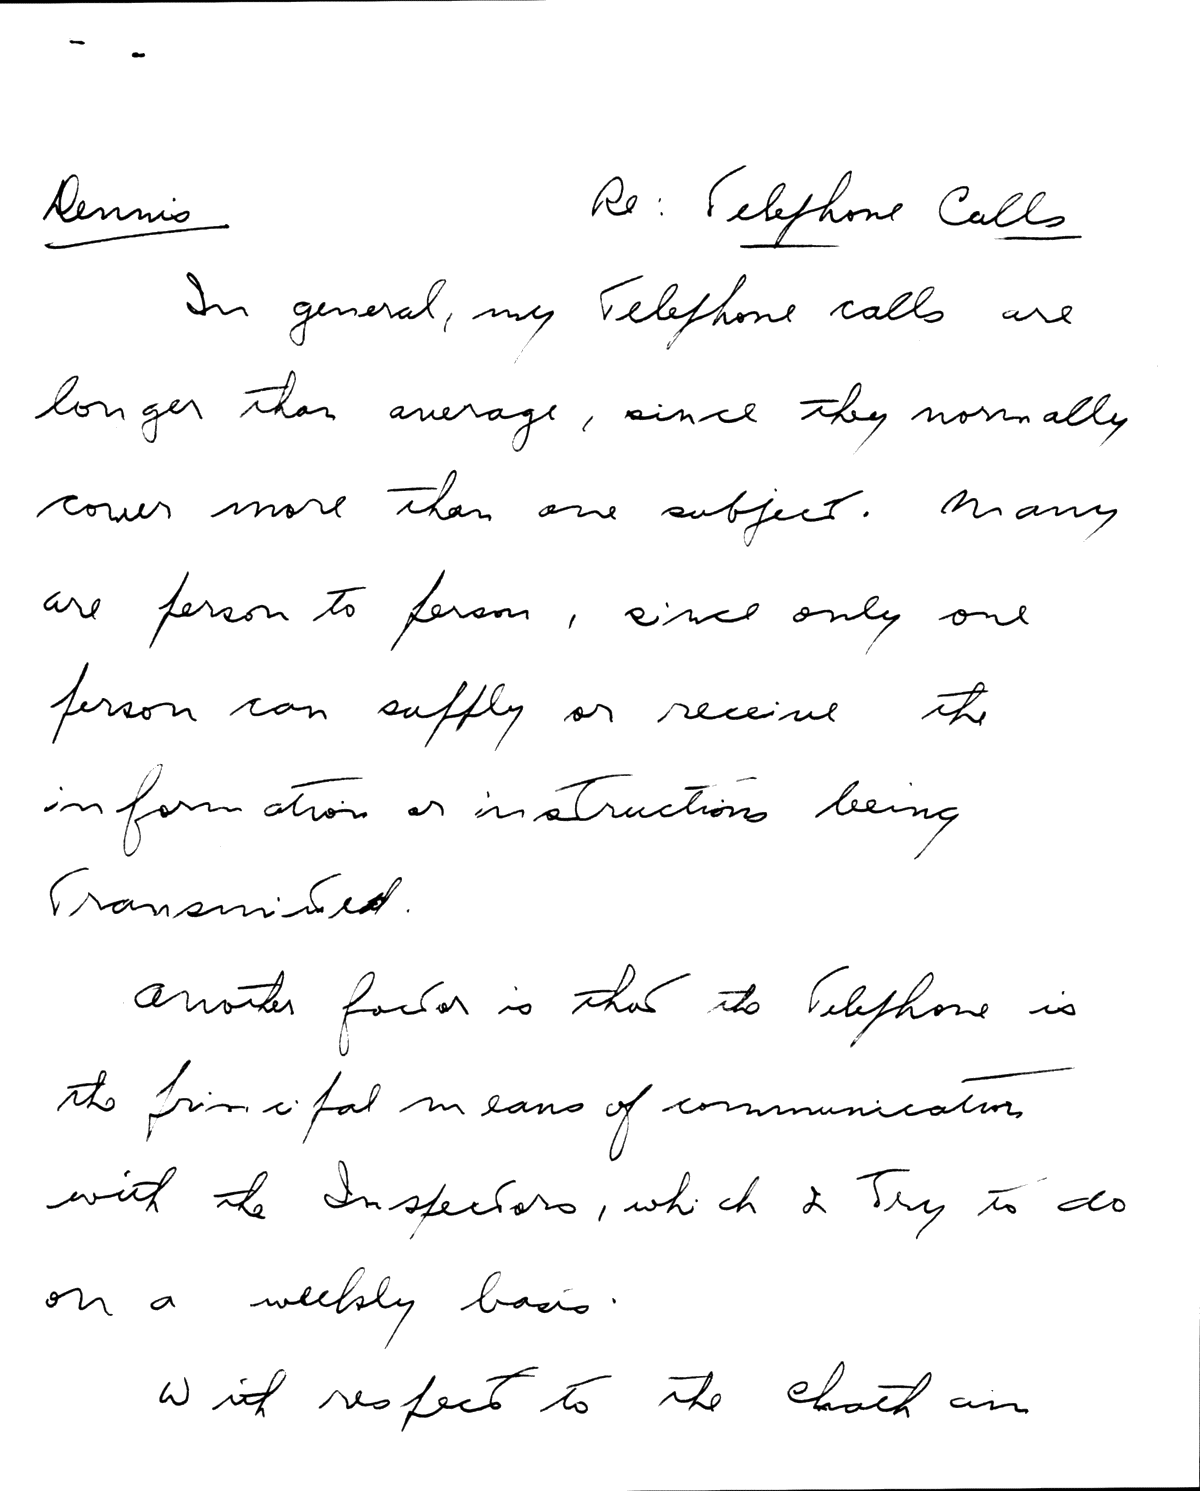 Dennis Re: Telephone Calls
In general, my Telephone calls are
longer than average, since they normally
cover more than one subject. Many
are person to person, since only one
person can supply or receive the
information or instructions being
Transmitted.
Another factor is that the Telephone is
the principal means of communication
with the Inspectors, which I Try to do
on a weekly basis.
With respect to the Chatham